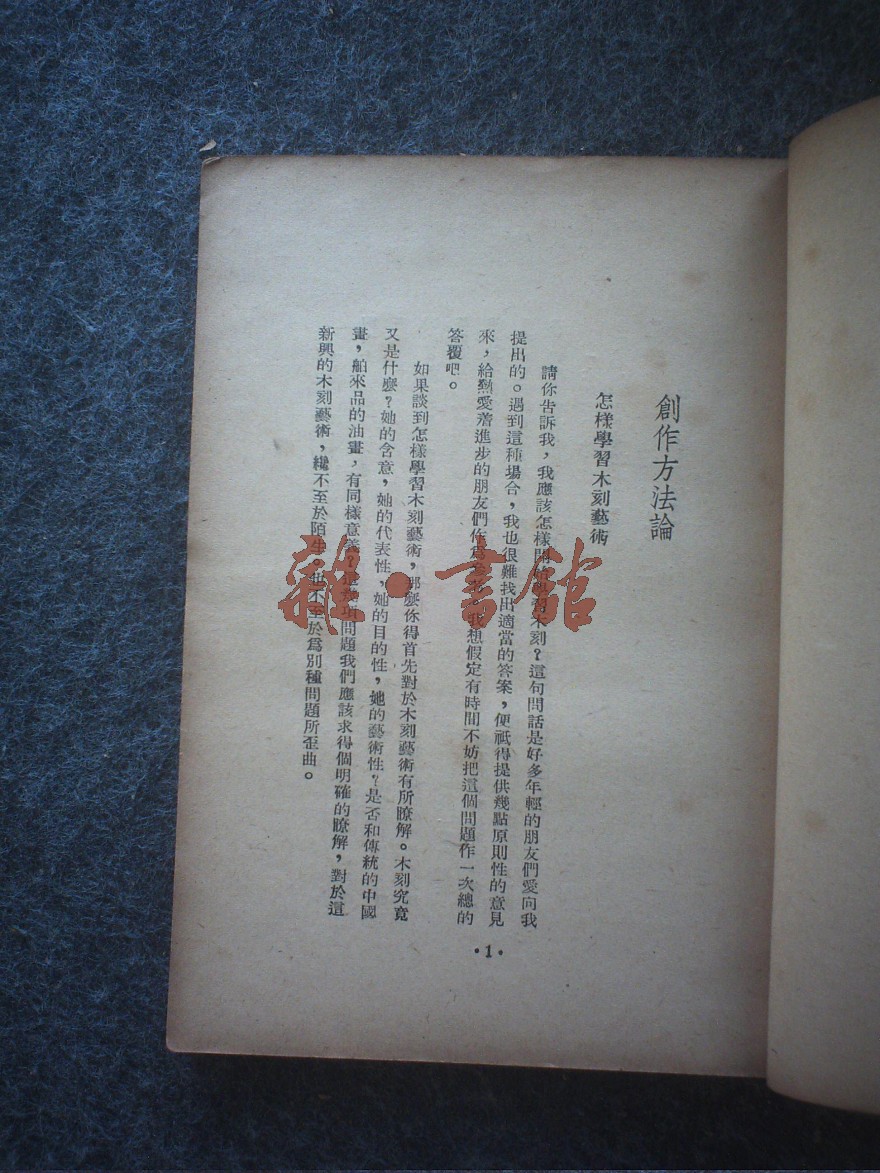 創作方法論
怎樣學習木刻藝術
請你告訴我，我應該怎樣開始學習木刻？這句問話是好多年輕的朋友們愛向我
提出的。遇到這種場合，我也很難找出適當的答案，便祇得提供幾點原則性的意見
來，給熱愛着進步的朋友們作為參考，我想假定有時間不妨把這個問題作一次總的
答覆吧。
如果談到怎樣學習木刻藝術，那麼你得首先對於木刻藝術有所瞭解。木刻究竟
又是什麼？她的含意，她的代表性，她的目的性，她的藝術性？是否和傳統的中國
畫，舶來品的油畫，有同樣意義？這幾項問題我們應該求得個明確的瞭解，對於這
新興的木刻藝術，纔不至於陌生。也不至於爲別種問題所歪曲。
·1·
雜·書館